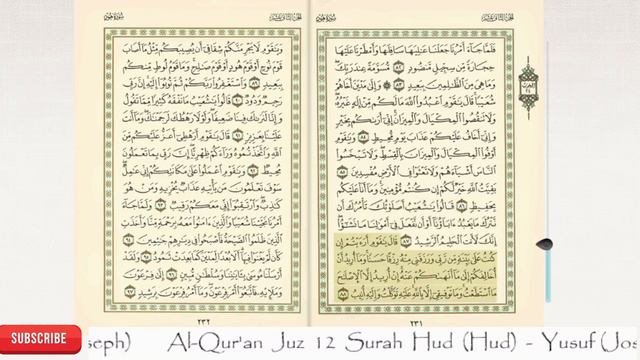 سُورَةُ هُودٍ
الجُزْءُ الثَّانِي عَشَرَ
فَلَمَّا جَآءَ أَمْرُنَا جَعَلْنَا عَٰلِيَهَا سَافِلَهَا وَأَمْطَرْنَا عَلَيْهَا
حِجَارَةً مِّن سِجِّيلٍ مَّنضُودٍ ٨٢ مُّسَوَّمَةً عِندَ رَبِّكَ
وَمَا هِيَ مِنَ ٱلظَّٰلِمِينَ بِبَعِيدٍ ٨٣ وَإِلَىٰ مَدْيَنَ أَخَاهُمْ
شُعَيْبًا قَالَ يَٰقَوْمِ ٱعْبُدُوا۟ ٱللَّهَ مَا لَكُم مِّنْ إِلَٰهٍ غَيْرُهُۥ
وَلَا تَنقُصُوا۟ ٱلْمِكْيَالَ وَٱلْمِيزَانَ إِنِّيٓ أَرَىٰكُم بِخَيْرٍ
وَإِنِّيٓ أَخَافُ عَلَيْكُمْ عَذَابَ يَوْمٍ مُّحِيطٍ ٨٤ وَيَٰقَوْمِ
أَوْفُوا۟ ٱلْمِكْيَالَ وَٱلْمِيزَانَ بِٱلْقِسْطِ وَلَا تَبْخَسُوا۟
ٱلنَّاسَ أَشْيَآءَهُمْ وَلَا تَعْثَوْا۟ فِى ٱلْأَرْضِ مُفْسِدِينَ ٨٥
بَقِيَّتُ ٱللَّهِ خَيْرٌ لَّكُمْ إِن كُنتُم مُّؤْمِنِينَ وَمَآ أَنَا۠ عَلَيْكُم
بِحَفِيظٍ ٨٦ قَالُوا۟ يَٰشُعَيْبُ أَصَلَوٰتُكَ تَأْمُرُكَ أَن
نَّتْرُكَ مَا يَعْبُدُ ءَابَآؤُنَآ أَوْ أَن نَّفْعَلَ فِىٓ أَمْوَٰلِنَا مَا نَشَٰٓؤُا۟
إِنَّكَ لَأَنتَ ٱلْحَلِيمُ ٱلرَّشِيدُ ٨٧ قَالَ يَٰقَوْمِ أَرَءَيْتُمْ إِن
كُنتُ عَلَىٰ بَيِّنَةٍ مِّن رَّبِّى وَرَزَقَنِى مِنْهُ رِزْقًا حَسَنًا وَمَآ أُرِيدُ أَنْ
أُخَالِفَكُمْ إِلَىٰ مَآ أَنْهَىٰكُمْ عَنْهُ إِنْ أُرِيدُ إِلَّا ٱلْإِصْلَٰحَ
مَا ٱسْتَطَعْتُ وَمَا تَوْفِيقِىٓ إِلَّا بِٱللَّهِ عَلَيْهِ تَوَكَّلْتُ وَإِلَيْهِ أُنِيبُ ٨٨
٢٣١
الجُزْءُ الثَّانِي عَشَرَ
سُورَةُ هُودٍ
وَيَٰقَوْمِ لَا يَجْرِمَنَّكُمْ شِقَاقِىٓ أَن يُصِيبَكُم مِّثْلُ مَآ أَصَابَ
قَوْمَ نُوحٍ أَوْ قَوْمَ هُودٍ أَوْ قَوْمَ صَٰلِحٍ وَمَا قَوْمُ لُوطٍ مِّنكُم
بِبَعِيدٍ ٨٩ وَٱسْتَغْفِرُوا۟ رَبَّكُمْ ثُمَّ تُوبُوٓا۟ إِلَيْهِ إِنَّ رَبِّى
رَحِيمٌ وَدُودٌ ٩٠ قَالُوا۟ يَٰشُعَيْبُ مَا نَفْقَهُ كَثِيرًا مِّمَّا تَقُولُ
وَإِنَّا لَنَرَىٰكَ فِينَا ضَعِيفًا وَلَوْلَا رَهْطُكَ لَرَجَمْنَٰكَ وَمَآ أَنتَ
عَلَيْنَا بِعَزِيزٍ ٩١ قَالَ يَٰقَوْمِ أَرَهْطِىٓ أَعَزُّ عَلَيْكُم مِّنَ
ٱللَّهِ وَٱتَّخَذْتُمُوهُ وَرَآءَكُمْ ظِهْرِيًّا إِنَّ رَبِّى بِمَا تَعْمَلُونَ
مُحِيطٌ ٩٢ وَيَٰقَوْمِ ٱعْمَلُوا۟ عَلَىٰ مَكَانَتِكُمْ إِنِّى عَٰمِلٌ
سَوْفَ تَعْلَمُونَ مَن يَأْتِيهِ عَذَابٌ يُخْزِيهِ وَمَنْ هُوَ
كَٰذِبٌ وَٱرْتَقِبُوٓا۟ إِنِّى مَعَكُمْ رَقِيبٌ ٩٣ وَلَمَّا جَآءَ
أَمْرُنَا نَجَّيْنَا شُعَيْبًا وَٱلَّذِينَ ءَامَنُوا۟ مَعَهُۥ بِرَحْمَةٍ مِّنَّا وَأَخَذَتِ
ٱلَّذِينَ ظَلَمُوا۟ ٱلصَّيْحَةُ فَأَصْبَحُوا۟ فِى دِيَٰرِهِمْ جَٰثِمِينَ ٩٤
كَأَن لَّمْ يَغْنَوْا۟ فِيهَآ أَلَا بُعْدًا لِّمَدْيَنَ كَمَا بَعِدَتْ ثَمُودُ ٩٥ وَلَقَدْ
أَرْسَلْنَا مُوسَىٰ بِـَٔايَٰتِنَا وَسُلْطَٰنٍ مُّبِينٍ ٩٦ إِلَىٰ فِرْعَوْنَ
وَمَلَإِي۟هِۦ فَٱتَّبَعُوٓا۟ أَمْرَ فِرْعَوْنَ وَمَآ أَمْرُ فِرْعَوْنَ بِرَشِيدٍ ٩٧
٢٣٢
SUBSCRIBE
seph) Al-Qur'an Juz 12 Surah Hud (Hud) - Yusuf (Jos